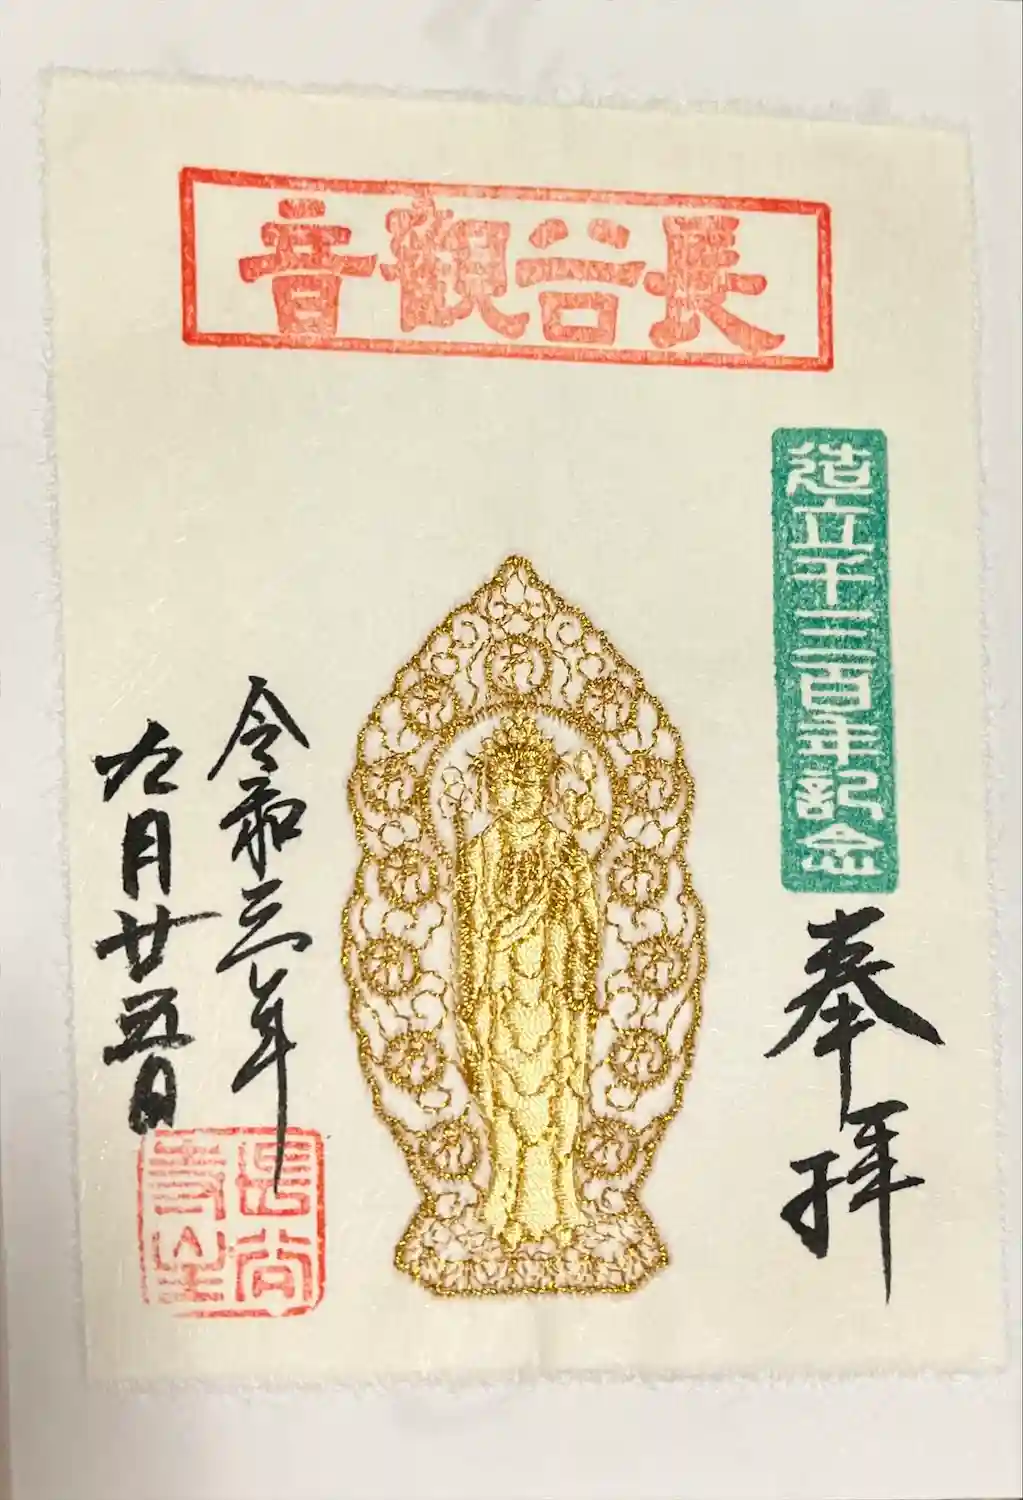 長谷觀音
造立千三百年記念
奉拝
令和三年
九月廿五日